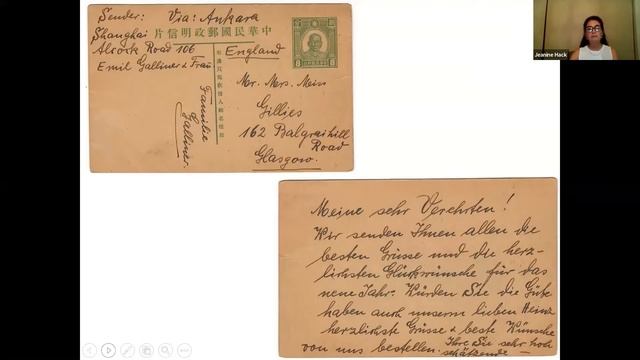 Sender: Via: Ankara
中華民國郵政明信片
Shanghai
Alcock Road 106
England
Emil Galliner & Frau
Familie
Galliner.
Mr. Mrs. Meiss
Gillies
162 Balgraihill
Road
Glasgow.
Meine sehr Verehrten!
Wir senden Ihnen allen die
besten Grüsse und die herz-
lichsten Glückwünsche für das
neue Jahr. Würden Sie die Güte
haben auch unserm lieben Heinz
herzlichste Grüsse & beste Wünsche
von uns bestellen. Ihre Sie sehr hoch
schätzende
Jeanine Hack